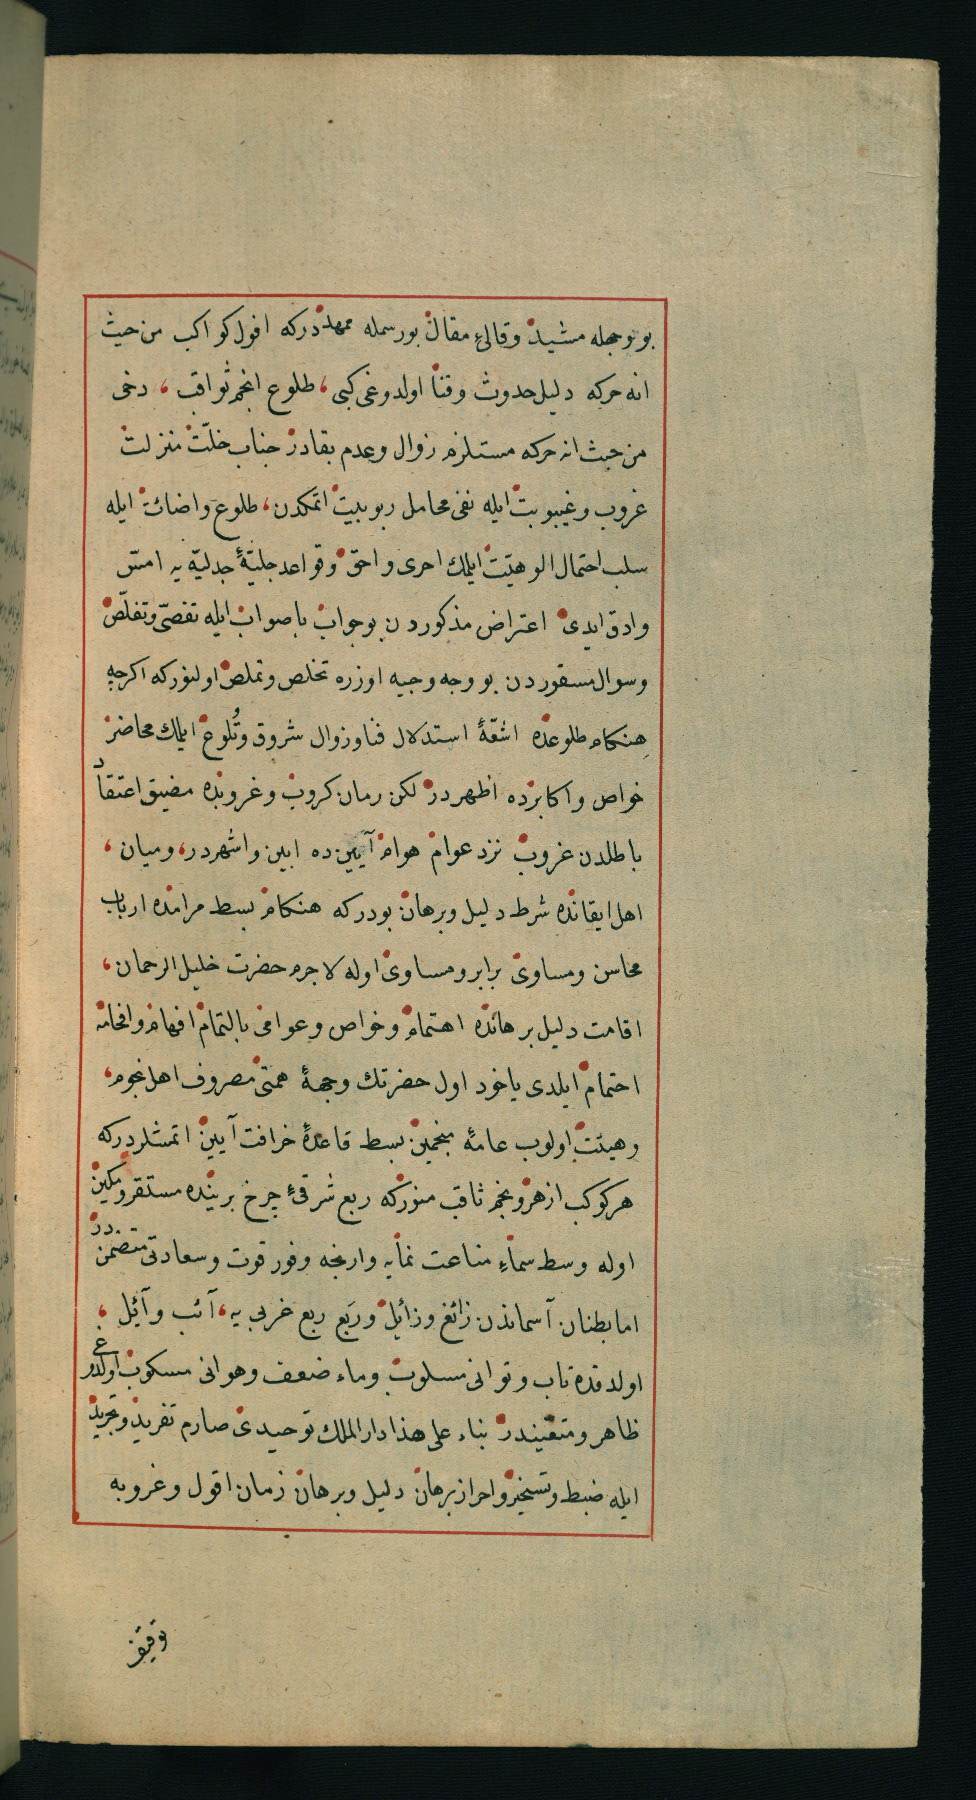 بو وجهله مشيد وقالئ مقال بو رسمله ممهددركه افول كواكب من حيث
انه حركه دليل حدوث وفنا اولدوغى كبى، طلوع انجم ثواقب، دخى
من حيث انه حركه مستلزم زوال وعدم بقادر جناب خلّت منزلت
غروب وغيبوبت ايله نفى محامل ربوبيت اتمكدن، طلوع واضائت ايله
سلب احتمال الوهيّت ايلمك احرى واحق وقواعد جليّهٔ جدليّه يه امسّ
وادق ايدى اعتراض مذكوردن بو جواب باصواب ايله تفصّى وتفلّص
وسوال مسفوردن بو وجه وجيه اوزره تخلص وتملص اولنوركه اكرچه
هنكام طلوعده اشعّهٔ استدلال فنا وزوال شروق وتُلوع ايلمك محاضر
خواص واكابرده اظهردر لكن زمان كروب وغروبده مضيق اعتقاد
باطلدن غروب نزد عوام هوام آيين ده ابين واشهردر، وميان،
اهل ايقانده شرط دليل وبرهان بودركه هنكام بسط مرامده ارباب
محاسن ومساوى برابر ومساوى اوله لاجرم حضرت خليل الرحمان،
اقامت دليل برهانده اهتمام وخواص وعوامى بالتمام افهام وافحامه
احتمام ايلدى ياخود اول حضرتك وجههٔ همتى مصروف اهل نجوم،
وهيئت اولوب عامهٔ منجمين بسط قاعدهٔ خرافت آيين اتمشلردركه
هر كوكب ازهر ونجم ثاقب منوركه ربع شرقئ چرخ برينده مستقر ومكين
اوله وسط سماءِ مناعت نمايه وارنجه وفور قوت وسعادتى متضمندر
اما بطنان آسماندن زائغ وزائل وربَع ربع غربى يه، آئب وآئيل،
اولدقده تاب وتوانى مسلوب وماء ضعف وهوانى مسكوب اولدوغى
ظاهر ومتعّيندر بناء على هذا دار الملك توحيدى صارم تفريد وتجريد
ايله ضبط وتسخير واحراز برهان دليل وبرهان زمان افول وغروبه
توقيف